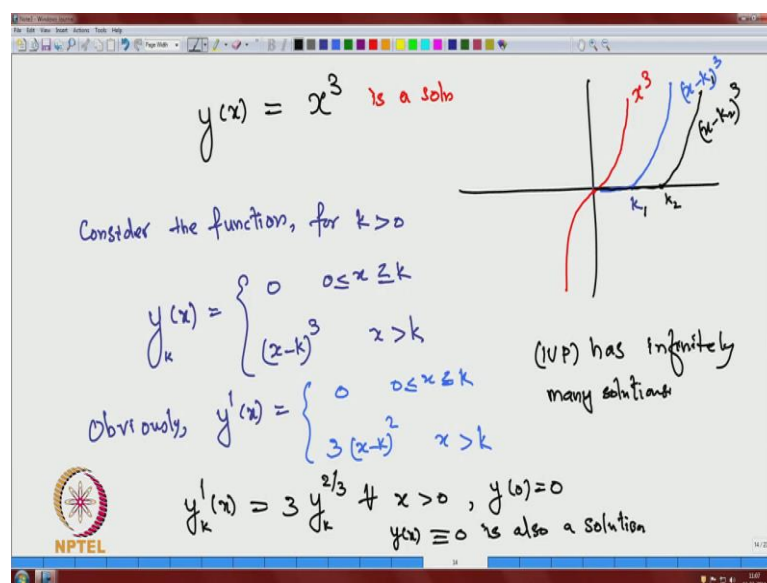 Note1 - Windows Journal
File Edit View Insert Actions Tools Help
Page Width
y(x) = x³ is a soln
x³
(x-k₁)³
(x-k₂)³
k₁ k₂
Consider the function, for k>0
yₖ(x) = { 0 0≤x≤k
(x-k)³ x>k
(IVP) has infinitely
many solutions
Obviously, y'(x) = { 0 0≤x≤k
3(x-k)² x>k
y'ₖ(x) = 3 yₖ^{2/3} ∀ x>0, y(0)=0
y(x) ≡ 0 is also a solution
NPTEL
14